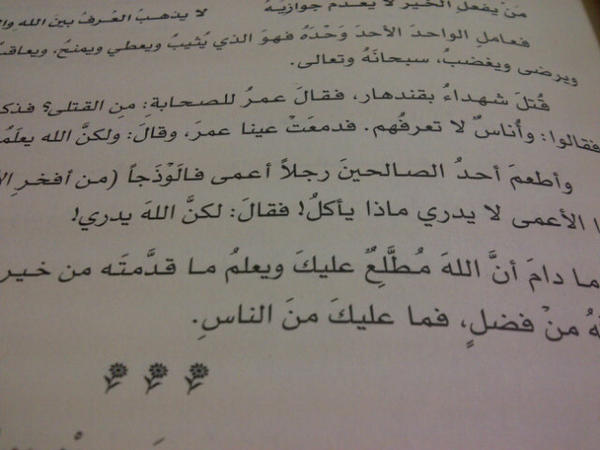 مَنْ يفعلِ الخيرَ لا يعدم جوازيَهُ لا يذهبُ العُرفُ بينَ اللهِ
فعاملِ الواحدَ الأحدَ وَحْدَهُ فهوَ الذي يُثيبُ ويعطي ويمنحُ، ويعاقبُ
ويرضى ويغضبُ، سبحانَهُ وتعالى.
قُتلَ شهداءُ بقندهار، فقالَ عمرُ للصحابةِ: مَنِ القتلى؟
فقالوا: وأُناسٌ لا تعرفُهم. فدمعَتْ عينا عمرَ، وقالَ: ولكنَّ الله يعلَمُ
وأطعمَ أحدُ الصالحينَ رجلاً أعمى فالَوْذَجاً (من أفخرِ
الأعمى لا يدري ماذا يأكلُ! فقالَ: لكنَّ اللهَ يدري!
ما دامَ أنَّ اللهَ مُطَّلِعٌ عليكَ ويعلمُ ما قدَّمتَه من خير
مِنْ فضلٍ، فما عليكَ منَ الناسِ.